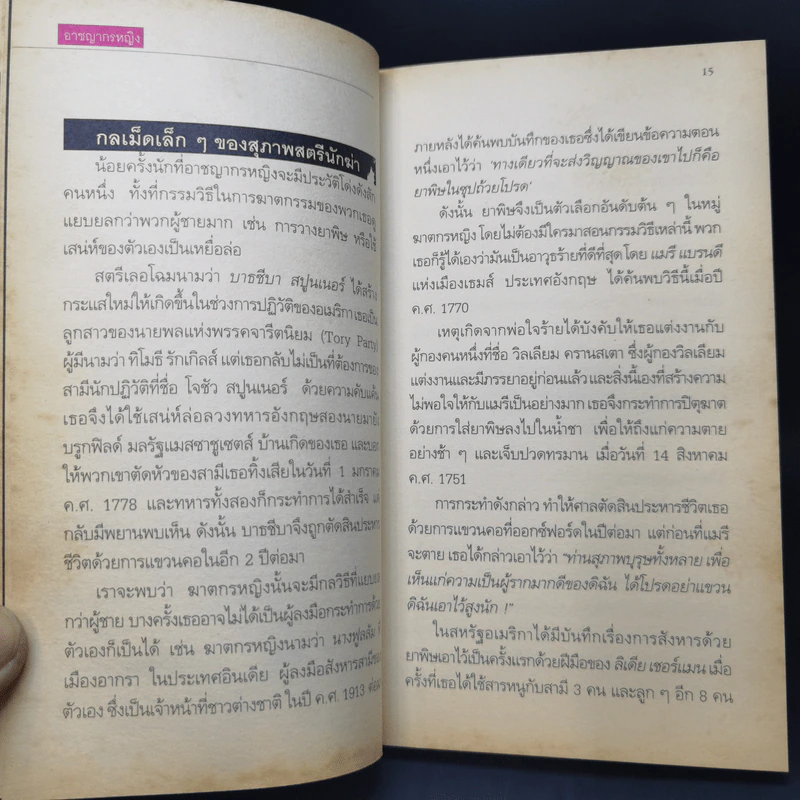 อาชญากรหญิง
กลเม็ดเล็ก ๆ ของสุภาพสตรีนักฆ่า
น้อยครั้งนักที่อาชญากรหญิงจะมีประวัติโด่งดังสัก
คนหนึ่ง ทั้งที่กรรมวิธีในการฆาตกรรมของพวกเธอดู
แยบยลกว่าพวกผู้ชายมาก เช่น การวางยาพิษ หรือใช้
เสน่ห์ของตัวเองเป็นเหยื่อล่อ
สตรีเลอโฉมนามว่า บาธชีบา สปูนเนอร์ ได้สร้าง
กระแสใหม่ให้เกิดขึ้นในช่วงการปฏิวัติของอเมริกา เธอเป็น
ลูกสาวของนายพลแห่งพรรคจารีตนิยม (Tory Party)
ผู้มีนามว่า ทิโมธี รักเกิลส์ แต่เธอกลับไม่เป็นที่ต้องการของ
สามีนักปฏิวัติที่ชื่อ โจชัว สปูนเนอร์ ด้วยความคับแค้น
เธอจึงได้ใช้เสน่ห์ล่อลวงทหารอังกฤษสองนายมายัง
บรูกฟิลด์ มลรัฐแมสซาชูเซตส์ บ้านเกิดของเธอ และบอก
ให้พวกเขาตัดหัวของสามีเธอทิ้งเสียในวันที่ 1 มกราคม
ค.ศ. 1778 และทหารทั้งสองก็กระทำการได้สำเร็จ แต่
กลับมีพยานพบเห็น ดังนั้น บาธชีบาจึงถูกตัดสินประหาร
ชีวิตด้วยการแขวนคอในอีก 2 ปีต่อมา
เราจะพบว่า ฆาตกรหญิงนั้นจะมีกลวิธีที่แยบยล
กว่าผู้ชาย บางครั้งเธออาจไม่ได้เป็นผู้ลงมือกระทำการด้วย
ตัวเองก็เป็นได้ เช่น ฆาตกรหญิงนามว่า นางฟูลลัม
เมืองอากรา ในประเทศอินเดีย ผู้ลงมือสังหารสามีของ
ตัวเอง ซึ่งเป็นเจ้าหน้าที่ชาวต่างชาติ ในปี ค.ศ. 1913 ต่อมา
15
ภายหลังได้ค้นพบบันทึกของเธอซึ่งได้เขียนข้อความตอน
หนึ่งเอาไว้ว่า 'ทางเดียวที่จะส่งวิญญาณของเขาไปก็คือ
ยาพิษในซุปถ้วยโปรด'
ดังนั้น ยาพิษจึงเป็นตัวเลือกอันดับต้น ๆ ในหมู่
ฆาตกรหญิง โดยไม่ต้องมีใครมาสอนกรรมวิธีเหล่านี้ พวก
เธอก็รู้ได้เองว่ามันเป็นอาวุธร้ายที่ดีที่สุด โดย แมรี แบรนดี
แห่งเมืองเธมส์ ประเทศอังกฤษ ได้ค้นพบวิธีนี้เมื่อปี
ค.ศ. 1770
เหตุเกิดจากพ่อใจร้ายได้บังคับให้เธอแต่งงานกับ
ผู้กองคนหนึ่งที่ชื่อ วิลเลียม ครานสเตา ซึ่งผู้กองวิลเลียม
แต่งงานและมีภรรยาอยู่ก่อนแล้ว และสิ่งนี้เองที่สร้างความ
ไม่พอใจให้กับแมรีเป็นอย่างมาก เธอจึงกระทำการปิตุฆาต
ด้วยการใส่ยาพิษลงไปในน้ำชา เพื่อให้ถึงแก่ความตาย
อย่างช้า ๆ และเจ็บปวดทรมาน เมื่อวันที่ 14 สิงหาคม
ค.ศ. 1751
การกระทำดังกล่าว ทำให้ศาลตัดสินประหารชีวิตเธอ
ด้วยการแขวนคอที่ออกซ์ฟอร์ดในปีต่อมา แต่ก่อนที่แมรี
จะตาย เธอได้กล่าวเอาไว้ว่า "ท่านสุภาพบุรุษทั้งหลาย เพื่อ
เห็นแก่ความเป็นผู้รากมากดีของดิฉัน ได้โปรดอย่าแขวน
ดิฉันเอาไว้สูงนัก !"
ในสหรัฐอเมริกาได้มีบันทึกเรื่องการสังหารด้วย
ยาพิษเอาไว้เป็นครั้งแรกด้วยฝีมือของ ลิเดีย เชอร์แมน เมื่อ
ครั้งที่เธอได้ใช้สารหนูกับสามี 3 คน และลูก ๆ อีก 8 คน